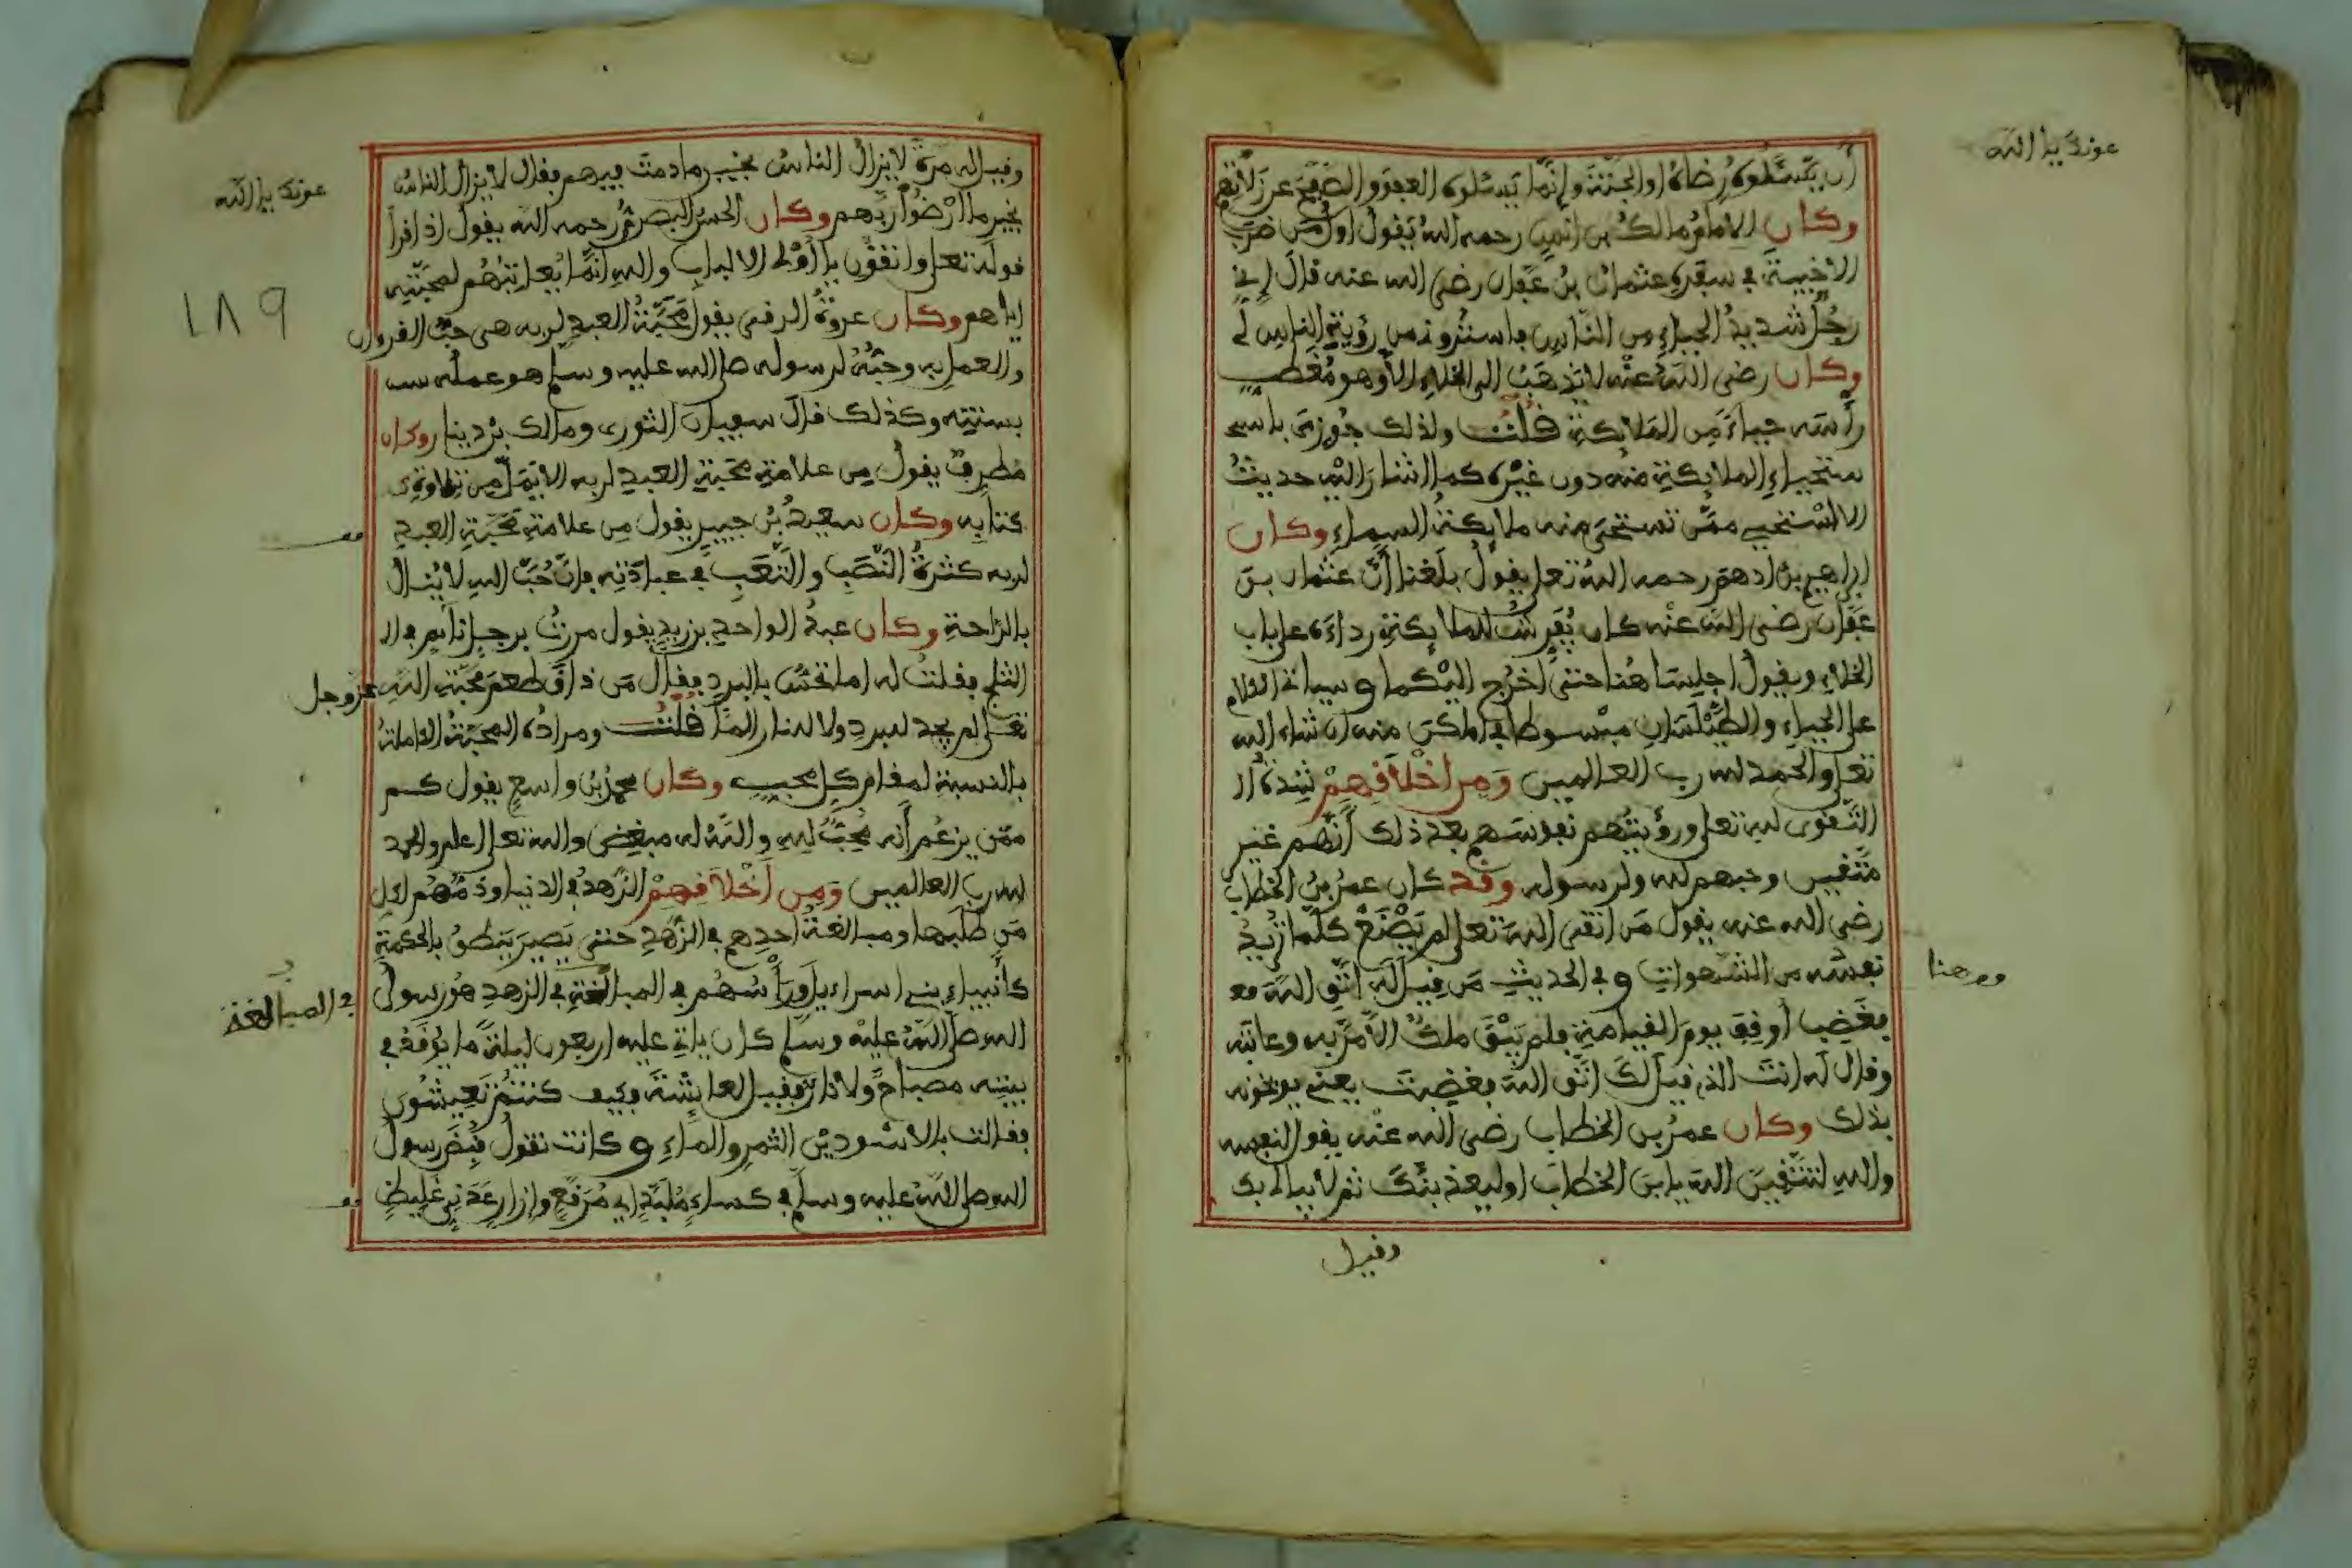 عونك يا الله
أن يسئلوه رضاه او الجنة وإنما يسئلوه العفو والصفح عن زلاتهم
وكان الامام مالك بن انس رحمه الله يقول اول من ضرب
الاخبية في سفره عثمان بن عفان رضى الله عنه قال إني
رجل شديد الحياء من الناس باستترونى من رؤية الناس لى
وكان رضى الله عنه لا يذهب الى الخلاء الا وهو مغطى
رأسه حياء من الملائكة قلت ولذلك جوزى باسـ
ستحياء الملائكة منه دون غيره كما اشار اليه حديث
الا استحيى ممن تستحى منه ملائكة السماء وكان
ابراهيم بن ادهم رحمه الله تعلى يقول بلغنا أن عثمان بن
عفان رضى الله عنه كان يفرش للملائكة رداءه على باب
الخلاء ويقول اجلسا هنا حتى أخرج اليكما وسياتى الكلام
على الحياء والطيلسان مبسوطا في اماكن منه ان شاء الله
تعلى والحمد لله رب العالمين ومن اخلاقهم شدة الـ
التقوى لله تعلى ورؤيتهم نفوسهم بعد ذلك أنهم غير
متقين وحبهم لله ولرسوله وقد كان عمر بن الخطاب
رضى الله عنه يقول من اتقى الله تعلى لم يصنع كلما تريد
نفسه من الشهوات وفي الحديث من قيل له اتق الله
فغضب أوقف يوم القيامة فلم يبق ملك الا مر به وعاتبه
وقال له انت الذى قيل لك اتق الله فغضبت يعنى يوبخونه
بذلك وكان عمر بن الخطاب رضى الله عنه يقول لنفسه
والله لتتقين الله يا بن الخطاب او ليعذبنك ثم لا يبالى بك
ومن هنا
وقيل
عونك يا الله
١٨٩
وقيل له مرة لا يزال الناس بخير ما دمت فيهم فقال لا يزال الناس
بخير ما ارضوا ربهم وكان الحسن البصرى رحمه الله يقول اذ اقرأ
قوله تعلى واتقون يا أولى الالباب والله انما يعاتبهم لمحبته
اياهم وكان عروة الرقى يقول محبة العبد لربه هى حب القرءان
والعمل به وحبه لرسوله صلى الله عليه وسلم هو عمله بسـ
بسنته وكذلك قال سفيان الثورى ومالك بن دينار وكان
مطرف يقول من علامة محبة العبد لربه الا يمل من تلاوة
كتابه وكان سعيد بن جبير يقول من علامة محبة العبد
لربه كثرة النصب والتعب في عبادته فإن حب الله لا ينال
بالراحة وكان عبد الواحد بن زيد يقول مررت برجل نائم في الـ
الثلج فقلت له اما تحس بالبرد فقال من ذاق طعم محبة الله عز وجل
تعلى لم يجد لبرد ولا لنار الما قلت ومراده المحبة الكاملة
بالنسبة لمقام كل محب وكان محمد بن واسع يقول كم
ممن يزعم أنه محب لله والله له مبغض والله تعلى اعلم والحمد
لله رب العالمين ومن أخلاقهم الزهد في الدنيا وذمهم لكل
من طلبها ومبالغة احدهم في الزهد حتى يصير ينطق بالحكمة
كأنبياء بنى اسراءيل ورأسهم في المبالغة في الزهد هو رسول
الله صلى الله عليه وسلم كان ياتى عليه اربعون ليلة ما يوقد في
بيته مصباح ولا نار فقيل لعائشة فكيف كنتم تعيشون
فقالت بالاسودين التمر والماء وكانت تقول قبض رسول
الله صلى الله عليه وسلم في كساء ملبد اى مرقع وإزار عدنى غليظ
في المبالغة